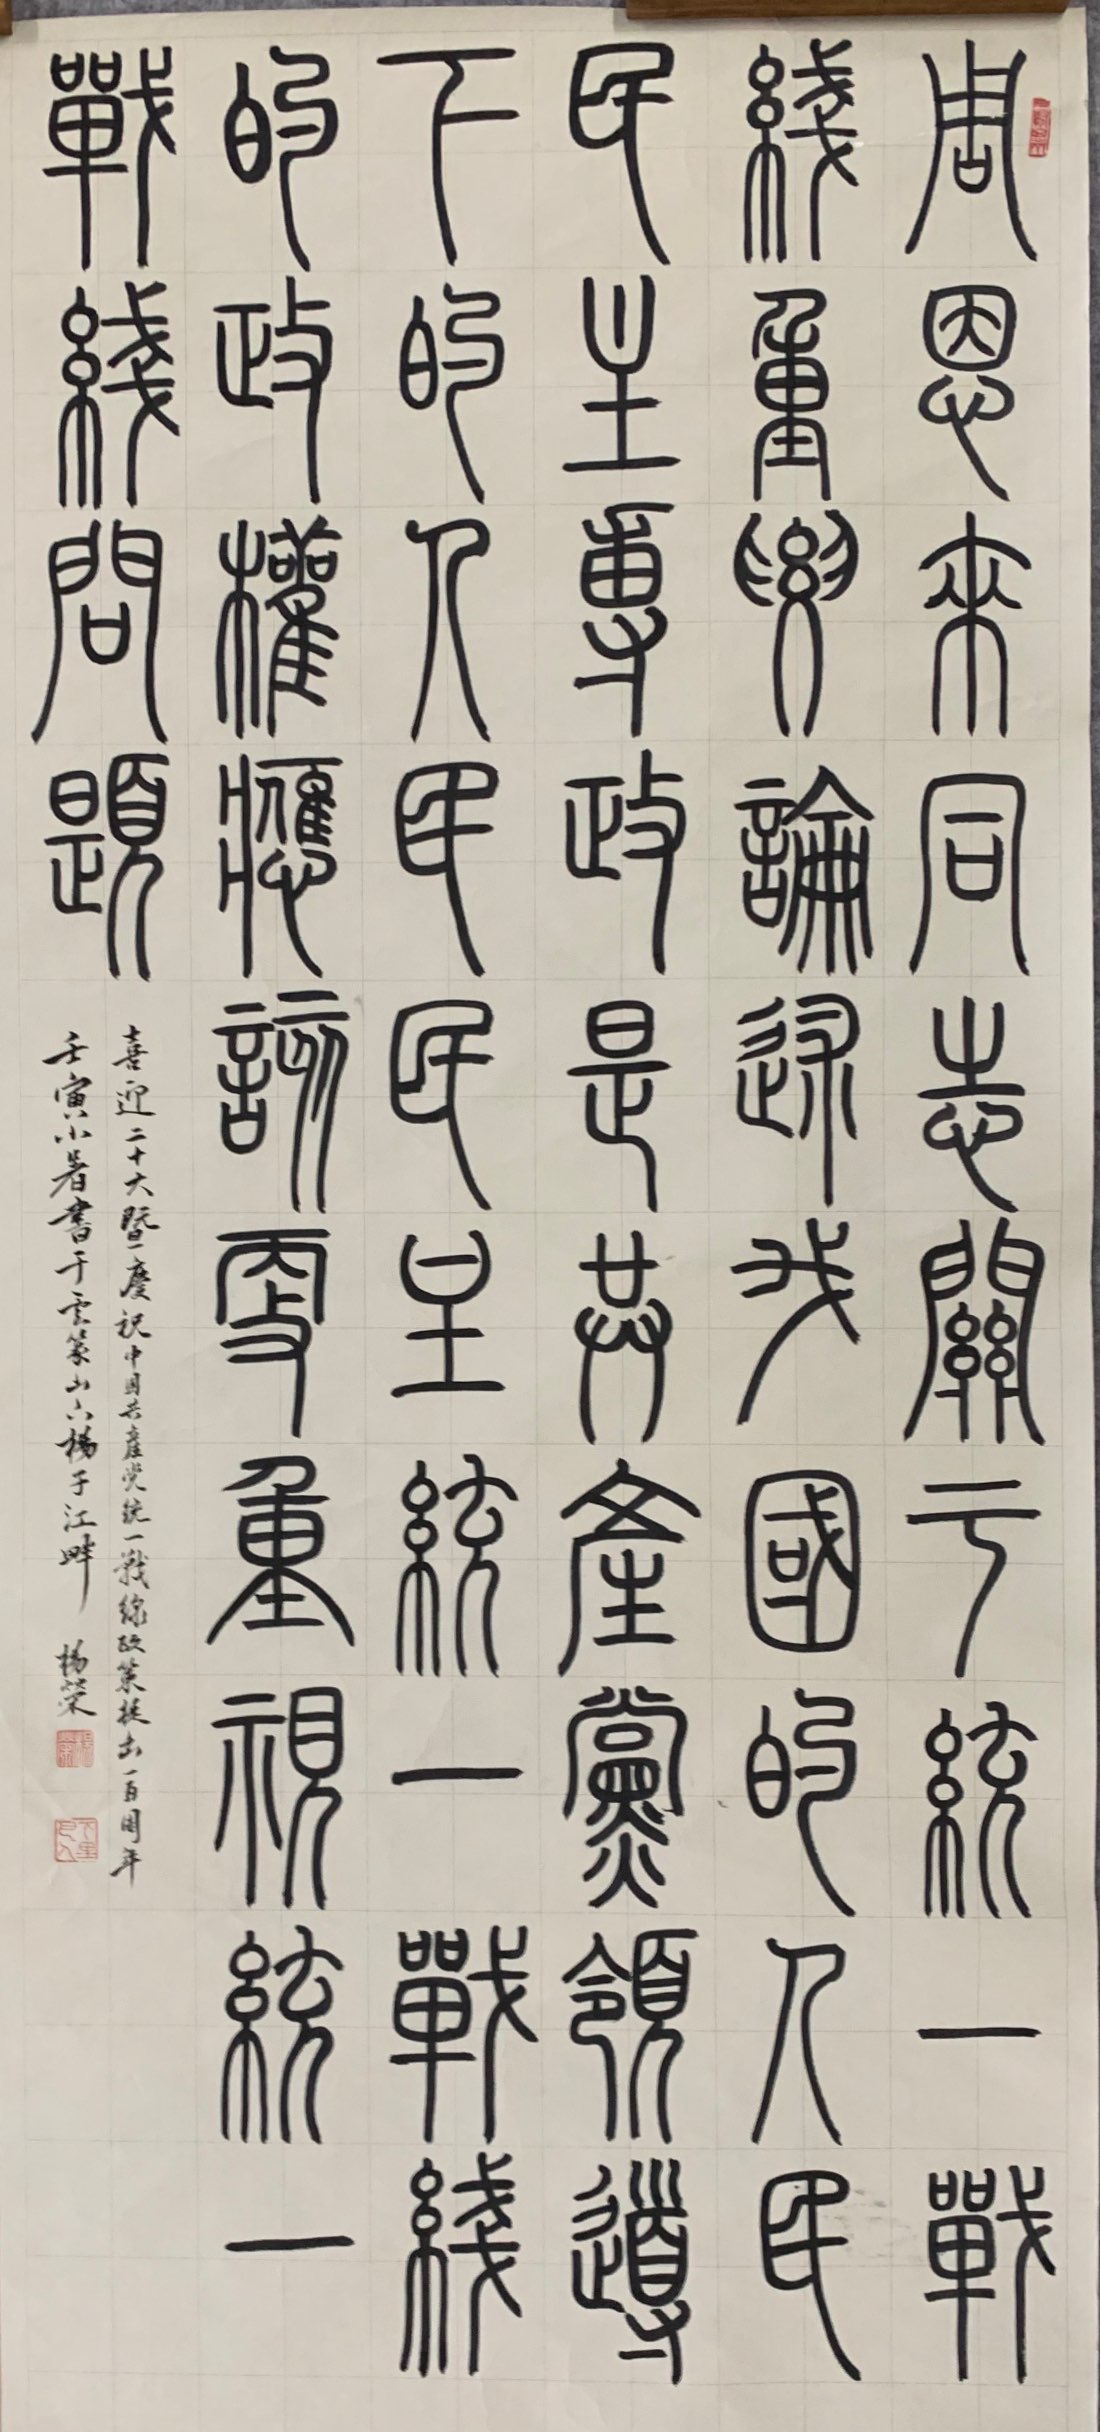 周恩來同志關于統一戰
綫重要論述我國的人民
民主專政是共產黨領導
下的人民民主統一戰綫
的政權應該受重視統一
戰綫問題
喜迎二十大暨慶祝中国共產党統一戰綫政策提出一百周年
壬寅小暑書于雲篆山下楊子江畔 楊榮